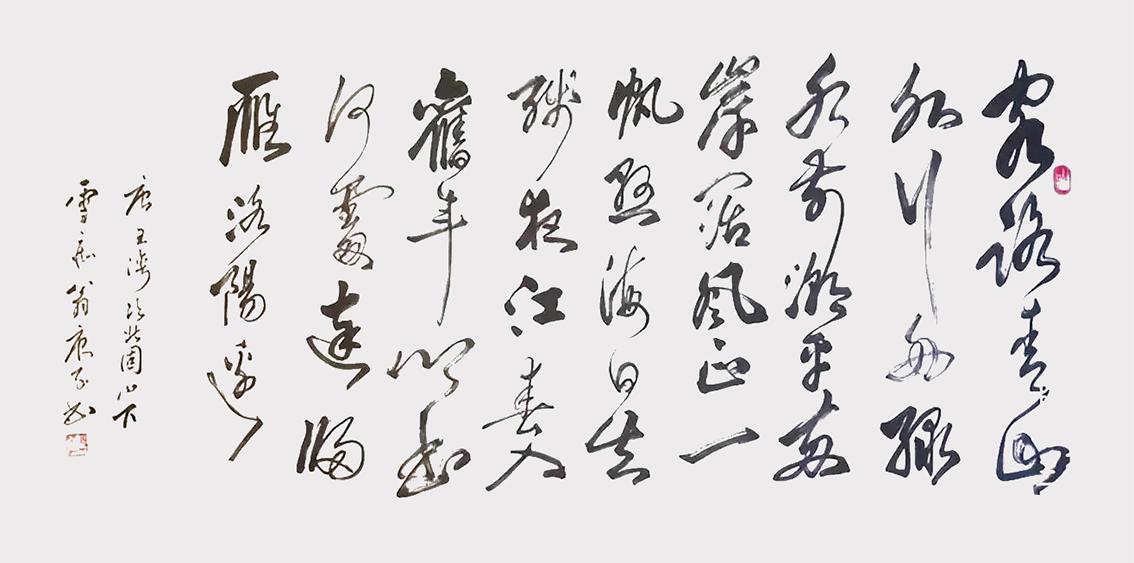 客路青山
外行舟綠
水前潮平兩
岸闊风正一
帆悬海日生
殘夜江春入
舊年鄉書
何處達歸
雁洛陽邊
唐王灣次北固山下
雪翁庚子書